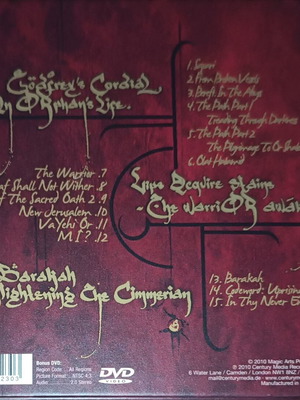 Godfrey's Cordial
An ORphan's Life.
1. Sapari
2. From Broken Vessels
3. Bereft In The Abyss
4. The Path Part 1
Treading Through Darkness
5. The Path Part 2
The Pilgrimage To Or
6. Olat Ha'tamid
The Warrior .7
Leaf Shall Not Wither .8
Of The Sacred Oath 2 .9
New Jerusalem .10
Va Yehi Or .11
M i ? .12
Lips Acquire Stains
- The WarriOR
Barakah
Enlightening The Cimmerian
13. Barakah
14. Codeword: Uprising
15. In Thy Never
Bonus DVD:
Region Code ... All Regions
Picture Format ... NTSC 4:3
Audio ... 2.0 Stereo
DVD
VIDEO
℗ 2010 Magic Arts
© 2010 Century Media
6 Water Lane / Camden / London NW1 8NZ /
mail@centurymedia.de
Manufactured in